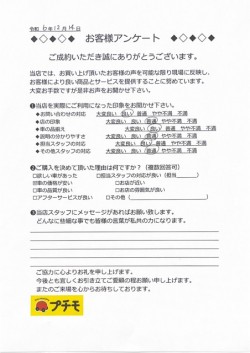 令和 6年12月14日
◆◇◆◇ お客様アンケート ◆◇◆◇
ご成約いただき誠にありがとうございます。
当店では、お買い上げ頂いたお客様の声を可能な限り現場に反映し、
お客様により良い商品とサービスを提供することに努めています。
大変お手数ですが是非お声をお聞かせ下さい。
❶当店を実際にご利用になった印象をお聞かせ下さい。
●お問い合わせの対応 大変良い 良い 普通 やや不満 不満
●店の印象 大変良い 良い 普通 やや不満 不満
●車の品揃え 大変良い 良い 普通 やや不満 不満
●説明の分かりやすさ 大変良い 良い 普通 やや不満 不満
●担当スタッフの対応 大変良い 良い 普通 やや不満 不満
●その他スタッフの対応 大変良い 良い 普通 やや不満 不満
❷ご購入を決めて頂いた理由は何ですか？（複数回答可）
□欲しい車があった □担当スタッフの対応が良い（担当 ）
□車の価格が安い □お店が近い
□車の品質が良い □お店の雰囲気が良い
□アフターサービスが良い □その他（ ）
❸当店スタッフにメッセージがあればお願い致します。
どんなに些細な事でも皆様の言葉が私共の力になります。
ご協力に心よりお礼を申し上げます。
今後とも宜しくお引き立てご愛顧の程お願い申し上げます。
またのご来場を心からお待ちしております。
プチモ